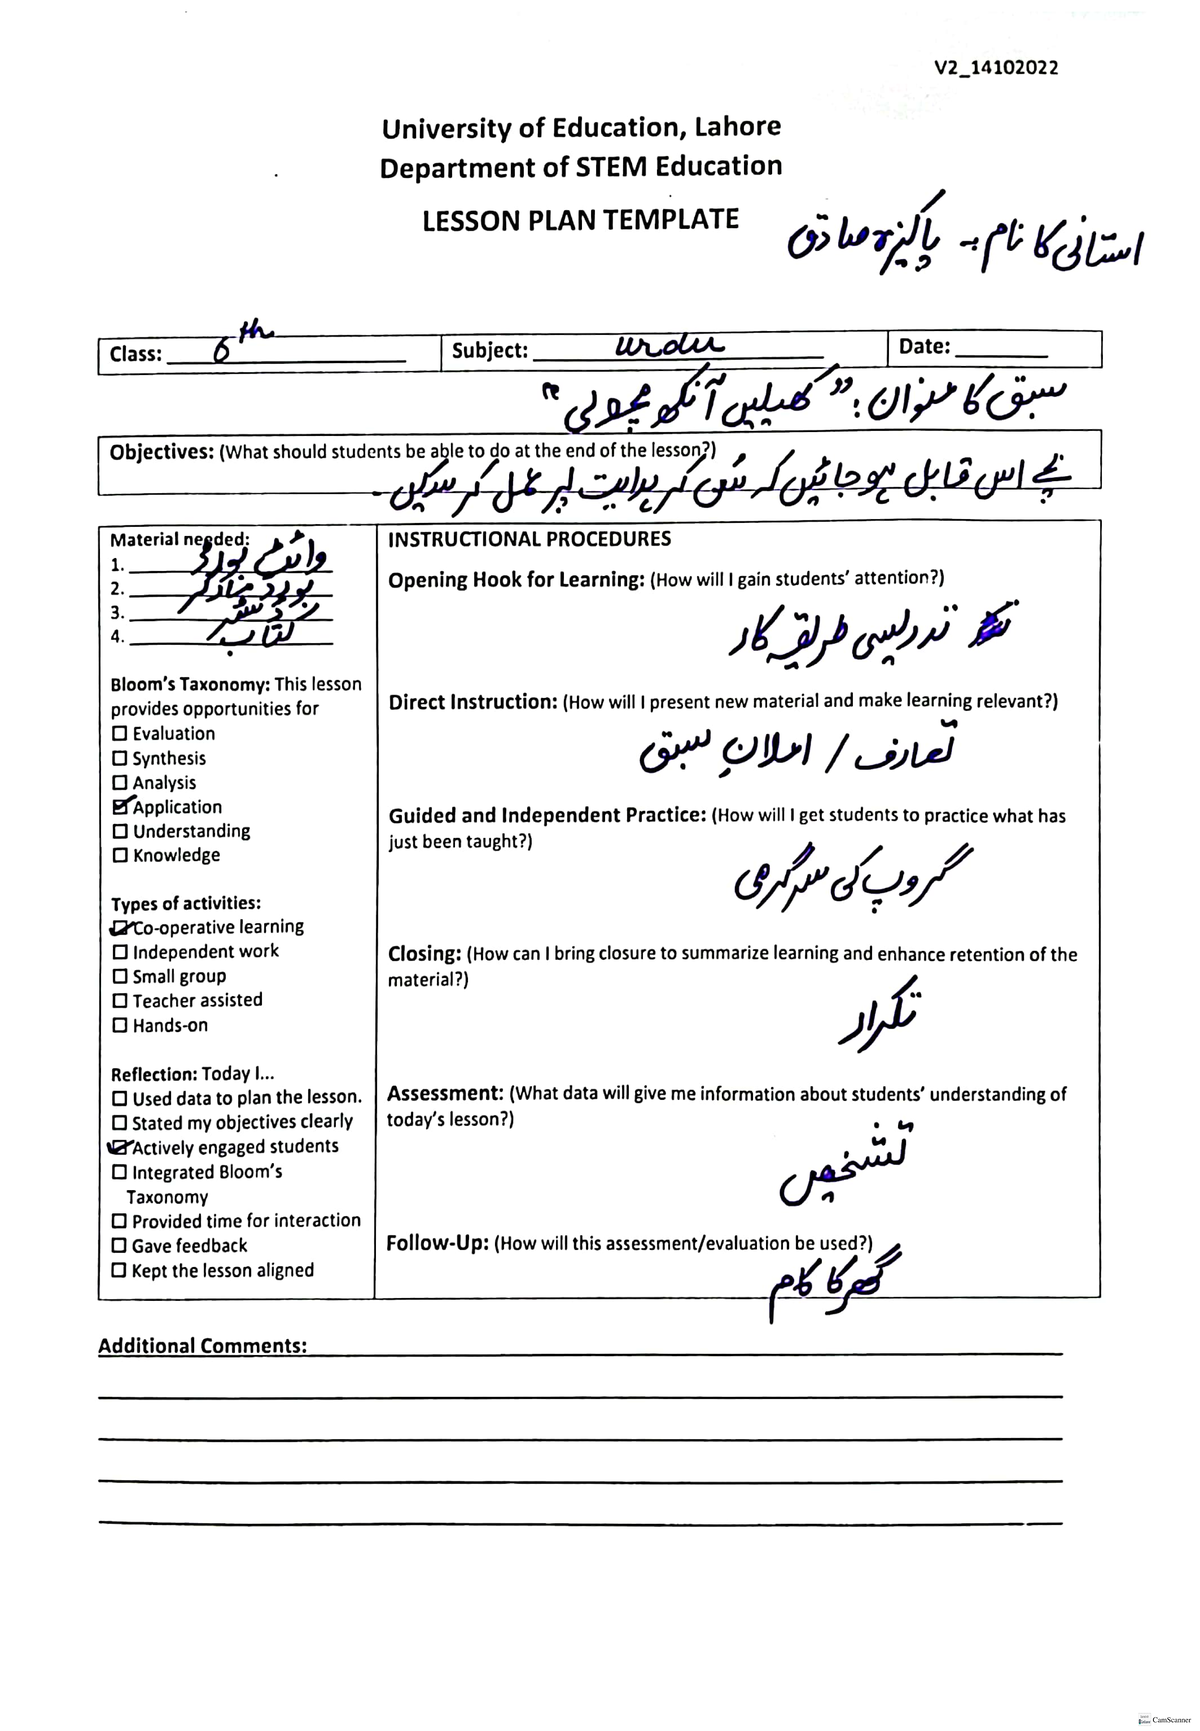 V2_14102022
University of Education, Lahore
Department of STEM Education
LESSON PLAN TEMPLATE
استانی کا نام :- پاکیزہ صادق
Class: 6th Subject: urdu Date:
سبق کا عنوان: "کھیلیں آنکھ مچولی"
Objectives: (What should students be able to do at the end of the lesson?)
بچے اس قابل ہو جائیں کہ سُن کر ہدایت پر عمل کر سکیں۔
Material needed:
1. وائٹ بورڈ
2. بورڈ مارکر
3. ڈسٹر
4. کتاب
Bloom's Taxonomy: This lesson
provides opportunities for
☐ Evaluation
☐ Synthesis
☐ Analysis
☑ Application
☐ Understanding
☐ Knowledge
Types of activities:
☑ Co-operative learning
☐ Independent work
☐ Small group
☐ Teacher assisted
☐ Hands-on
Reflection: Today I...
☐ Used data to plan the lesson.
☐ Stated my objectives clearly
☑ Actively engaged students
☐ Integrated Bloom's
Taxonomy
☐ Provided time for interaction
☐ Gave feedback
☐ Kept the lesson aligned
INSTRUCTIONAL PROCEDURES
Opening Hook for Learning: (How will I gain students' attention?)
تدریسی طریقہ کار
Direct Instruction: (How will I present new material and make learning relevant?)
تعارف / اعلانِ سبق
Guided and Independent Practice: (How will I get students to practice what has
just been taught?)
گروپ کی سرگرمی
Closing: (How can I bring closure to summarize learning and enhance retention of the
material?)
تکرار
Assessment: (What data will give me information about students' understanding of
today's lesson?)
تشخیص
Follow-Up: (How will this assessment/evaluation be used?)
گھر کا کام
Additional Comments:
CamScanner